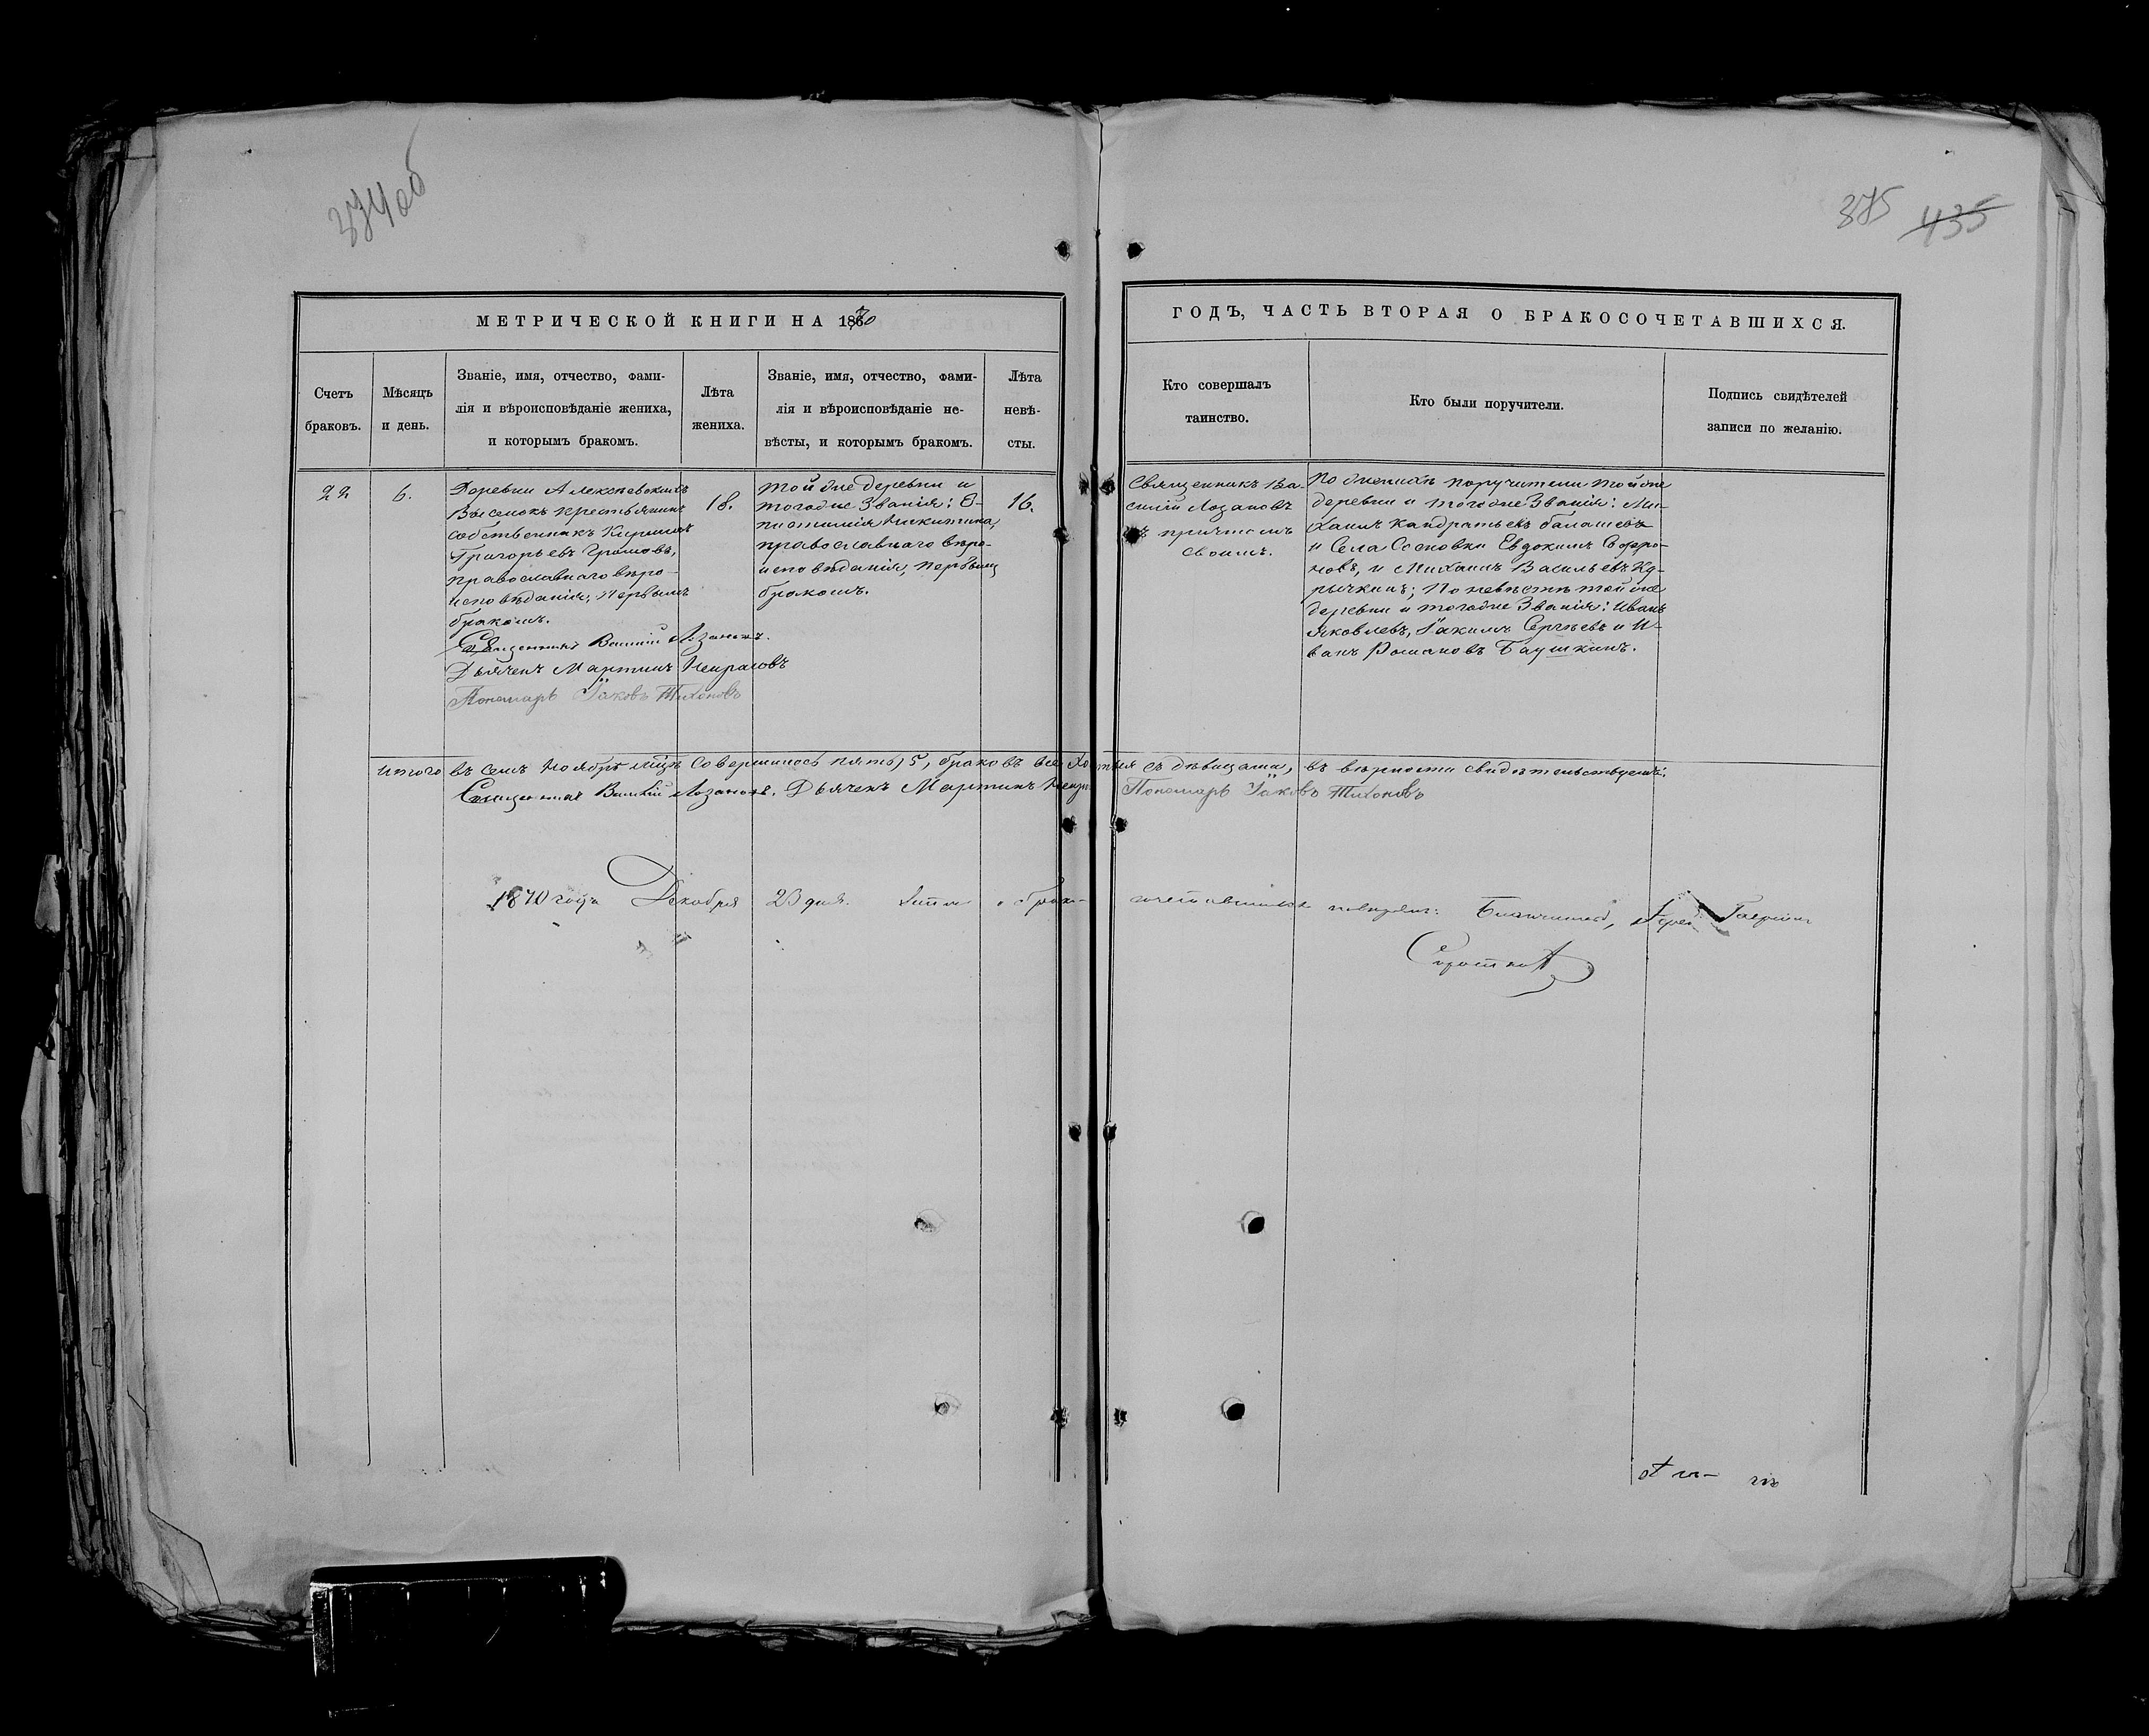 374об
375 435
МЕТРИЧЕСКОЙ КНИГИ НА 1870
ГОДЪ, ЧАСТЬ ВТОРАЯ О БРАКОСОЧЕТАВШИХСЯ.
Счетъ
браковъ.
Мѣсяцъ
и день.
Званіе, имя, отчество, фами-
лія и вѣроисповѣданіе жениха,
и которымъ бракомъ.
Лѣта
жениха.
Званіе, имя, отчество, фами-
лія и вѣроисповѣданіе не-
вѣсты, и которымъ бракомъ.
Лѣта
невѣ-
сты.
Кто совершалъ
таинство.
Кто были поручители.
Подпись свидѣтелей
записи по желанію.
22
6.
Деревни Алексѣевскихъ
Выселокъ крестьянинъ
собственникъ Кириллъ
Григорьевъ Громовъ,
православнаго вѣро-
исповѣданія, первымъ
бракомъ.
Священникъ Василій Лозановъ.
Дьячекъ Мартинъ Некрасовъ
Пономарь Іаковъ Тихоновъ
18.
Той же деревни и
того же званія: Е-
пистимія Никитина,
православнаго вѣро-
исповѣданія, первымъ
бракомъ.
16.
Священникъ Ва-
силій Лозановъ
съ причтомъ
своимъ.
По женихѣ поручители той же
деревни и того же Званія: Ми-
хаилъ Кандратьевъ балашевъ
и Села Сосновки Евдокимъ Софро-
новъ, и Михаилъ Васильевъ Ку-
рычкинъ; По невѣстѣ той же
деревни и того же Званія: Иванъ
Яковлевъ, Іакимъ Сергѣевъ и И-
ванъ Романовъ Баушкинъ.
Итого въ семъ Ноябрѣ мцѣ совершилось пять, 5, браковъ все съ дѣвицами, въ вѣрности свидѣтельствуемъ:
Священникъ Василій Лозановъ. Дьячекъ Мартинъ Некр Пономарь Іаковъ Тихоновъ
1870 года Декабря 23 дня. о брако- сочетавшихся Благочинный,